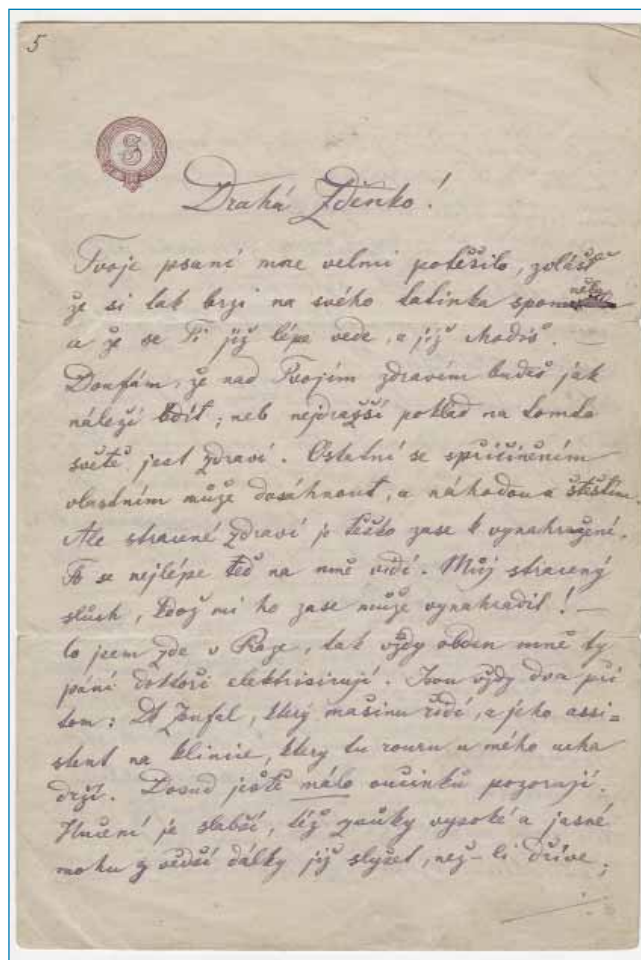 5
S
Drahá Zdenko!
Tvoje psaní mne velmi potěšilo, zvlášť
že si tak brzi na svého tatínka
a že se Ti již lépe vede, a již chodíš.
Doufám, že nad Tvojím zdravím budeš jak
náleží bdít; neb nejdražší poklad na tomto
světě jest zdraví. Ostatní se přičiněním
vlastním může dosáhnout, a náhodou a štěstím.
Ale stracené zdraví je těžko zase k vynahražení.
To se nejlépe teď na mně vidí. Můj stracený
sluch, kdož mi ho zase může vynahradit! —
Co jsem zde v Praze, tak vždy obden mně ty
páni doktoři elektrisirují. Jsou vždy dva při
tom: Dr Zoufal, který mašinu řídí, a jeho assi=
stent na klinice, který tu rouru u mého ucha
drží. Dosud ještě málo oučinků pozorují.
Hučení je slabší, též zvuky vysoké a jasné
mohu z větší dálky již slyšet, než-li dříve;